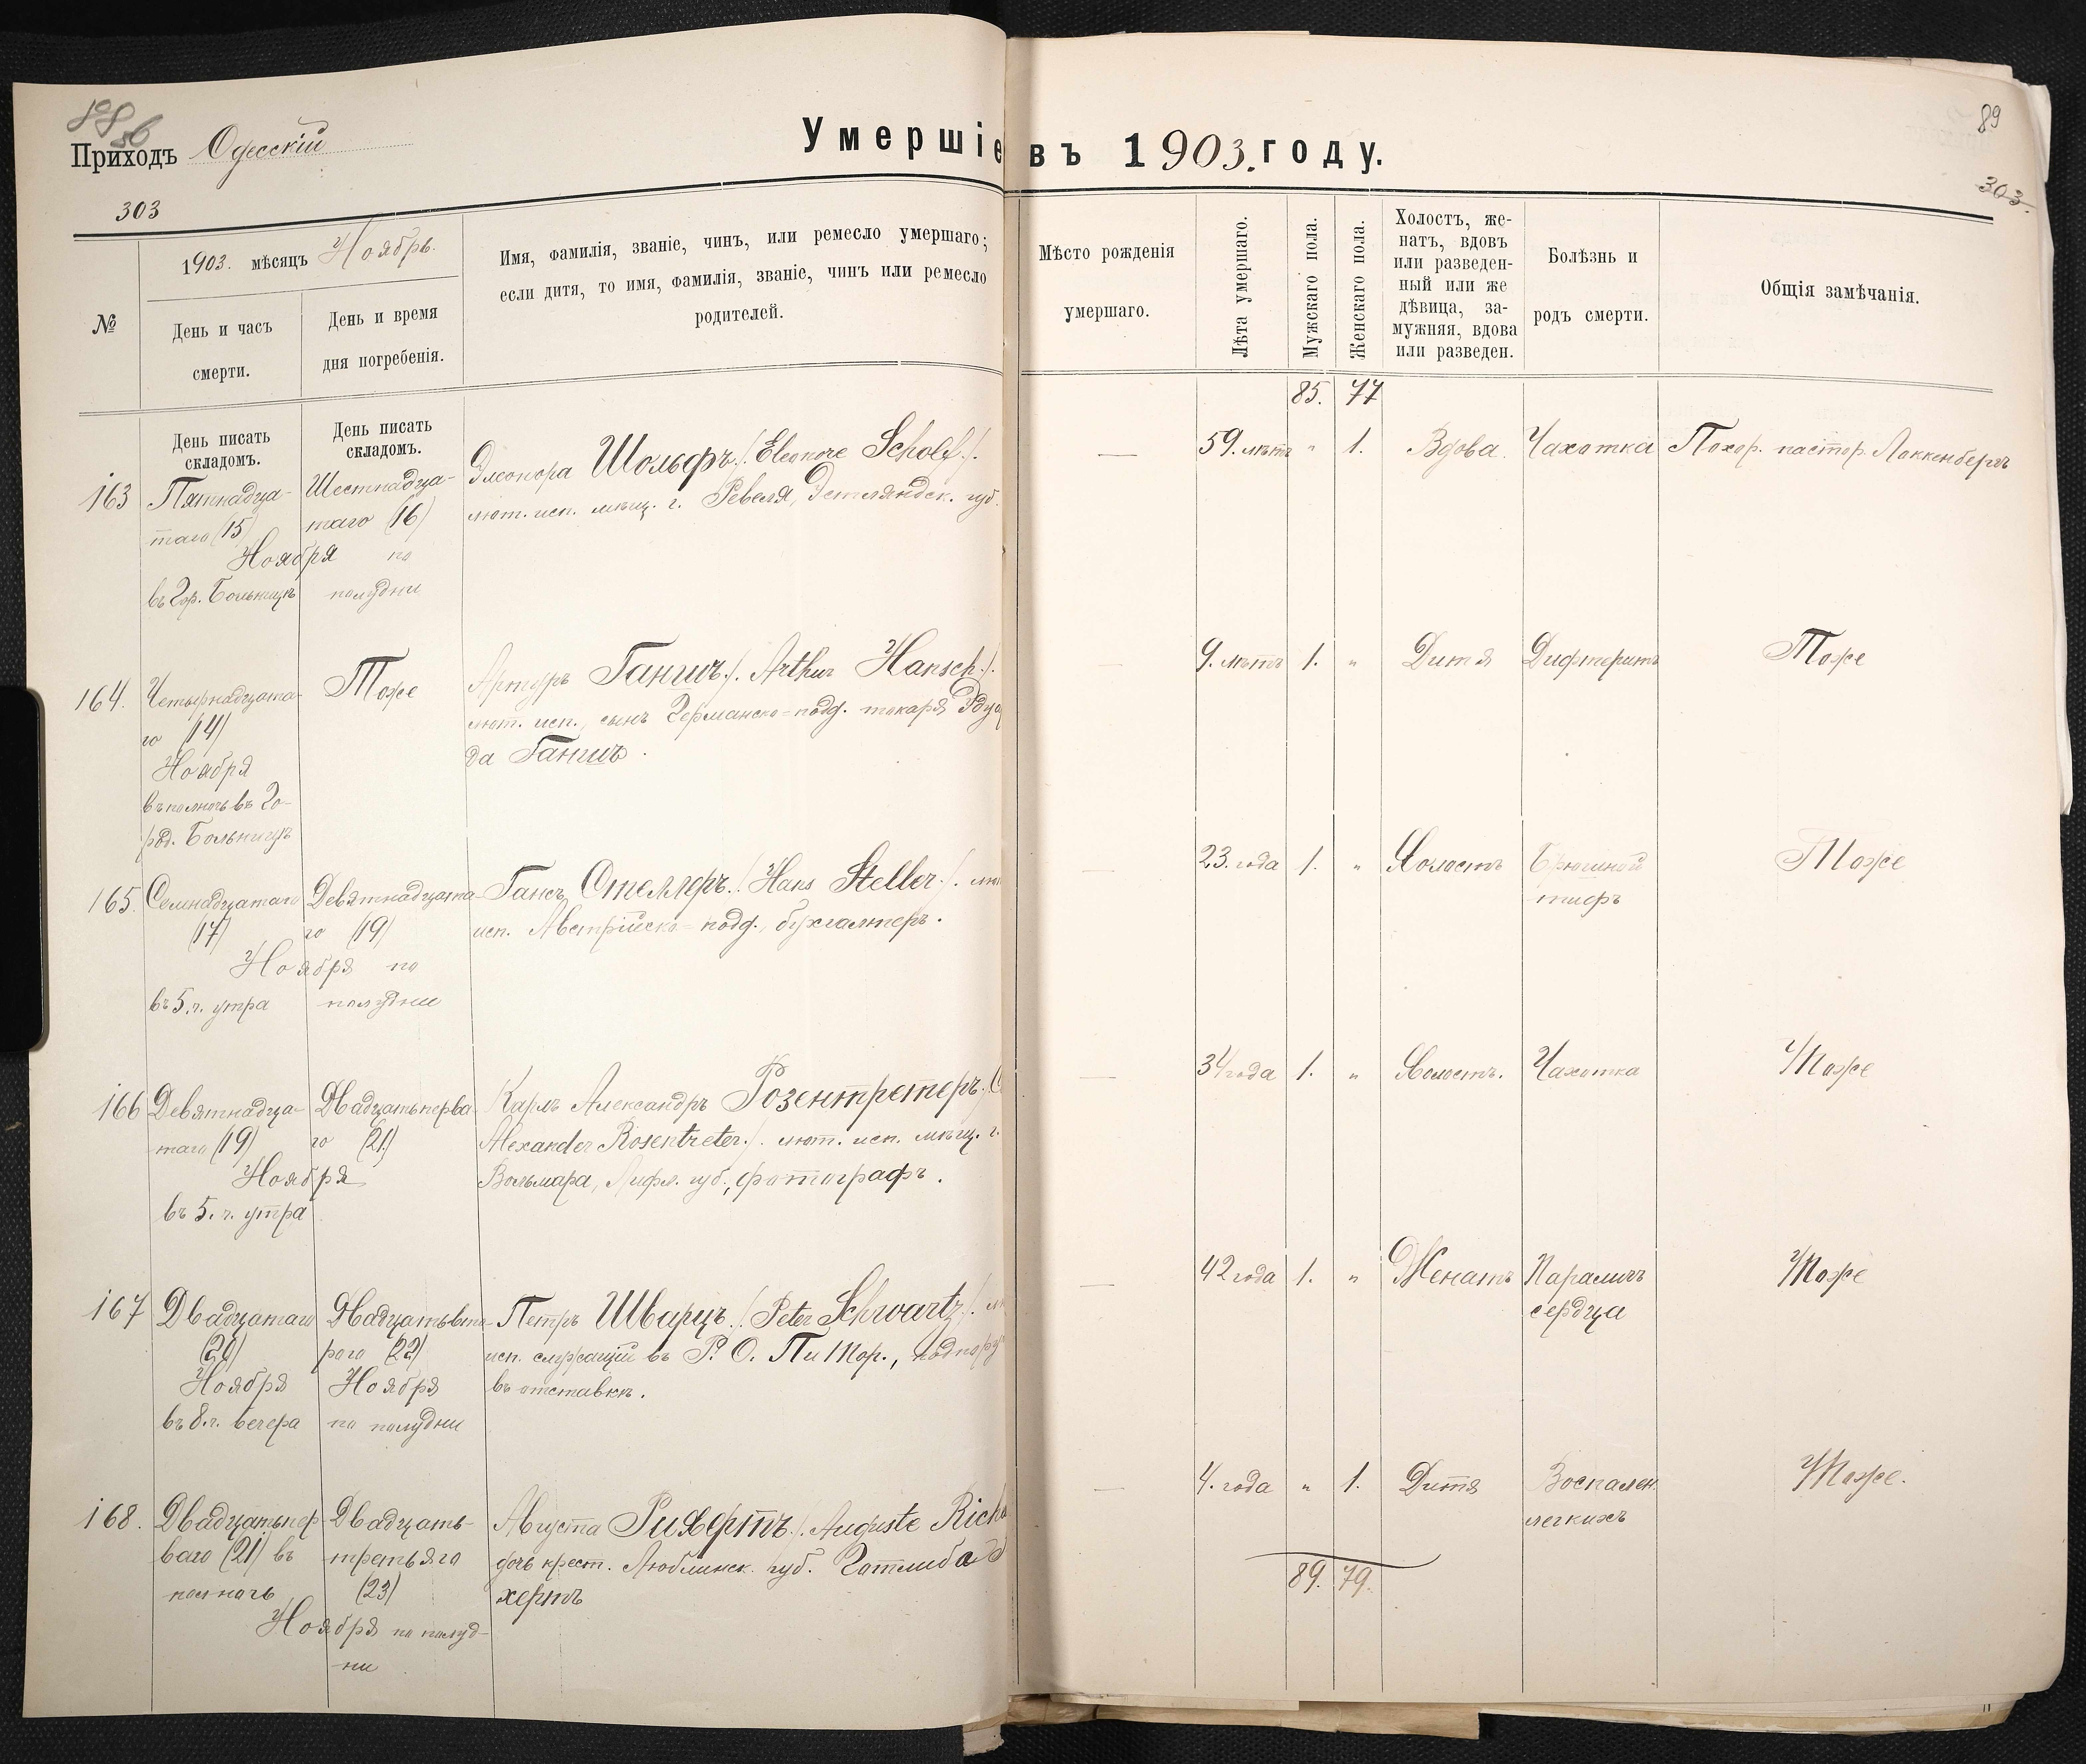 88 об
Приходъ Одесскій
Умершіе въ 1903. году.
89
303
303.
№
1903. мѣсяцъ Ноябрь.
День и часъ
смерти.
День и время
дня погребенія.
Имя, фамилія, званіе, чинъ, или ремесло умершаго;
если дитя, то имя, фамилія, званіе, чинъ или ремесло
родителей.
Мѣсто рожденія
умершаго.
Лѣта умершаго.
Мужскаго пола.
Женскаго пола.
Холостъ, же-
натъ, вдовъ
или разведен-
ный или же
дѣвица, за-
мужняя, вдова
или разведен.
Болѣзнь и
родъ смерти.
Общія замѣчанія.
85. 77
День писать
складомъ.
День писать
складомъ.
163
Пятнадца-
таго (15)
Ноября
въ Гор. Больницѣ
Шестнадца-
таго (16)
по
полудни
Элеонора Шольфъ ./. Eleonore Scholf ./.
лют. исп. мѣщ. г. Ревеля, Эстляндск. губ.
—
59. лѣтъ " 1. Вдова. Чахотка Похор. пастор. Локкенбергъ
164.
Четырнадцата-
го (14)
Ноября
въ полночь въ Го-
род. Больницѣ
Тоже
Артуръ Ганшъ ./. Arthur Hansch ./.
лют. исп., сынъ Германско-подд. токаря Эдуар
да Ганшъ.
—
9. лѣтъ 1. " Дитя Дифтеритъ Тоже
165.
Семнадцатаго
(17)
Ноября
въ 5. ч. утра
Девятнадцата-
го (19)
по
полудни
Гансъ Стеллеръ ./. Hans Steller ./. лют
исп. Австрійско-подд., бухгалтеръ.
23. года 1. " Холостъ Брюшной
тифъ
Тоже
166
Девятнадца-
таго (19)
Ноября
въ 5. ч. утра
Двадцатьперва
го (21)
Карлъ Александръ Розентретеръ ./. C
Alexander Rosentreter ./. лют. исп. мѣщ. г.
Вольмара, Лифл. губ., фотографъ.
—
34 года 1. " Холостъ. Чахотка Тоже
167
Двадцатаго
(20)
Ноября
въ 8. ч. вечера
Двадцатьвто-
рого (22)
Ноября
по полудни
Петръ Шварцъ ./. Peter Schwartz ./. лю
исп. служащій въ Р. О. П и Тор., подпору
въ отставкѣ.
—
42 года 1. " Женатъ Параличъ
сердца
Тоже
168.
Двадцатьпер-
ваго (21) въ
полночь
Двадцать-
третьяго
(23)
Ноября по полуд-
ни
Августа Рихертъ ./. Auguste Rich
дочь крест. Люблинск. губ. Готлиба
хертъ
—
4. года " 1. Дитя Воспален.
легкихъ
Тоже.
89. 79.